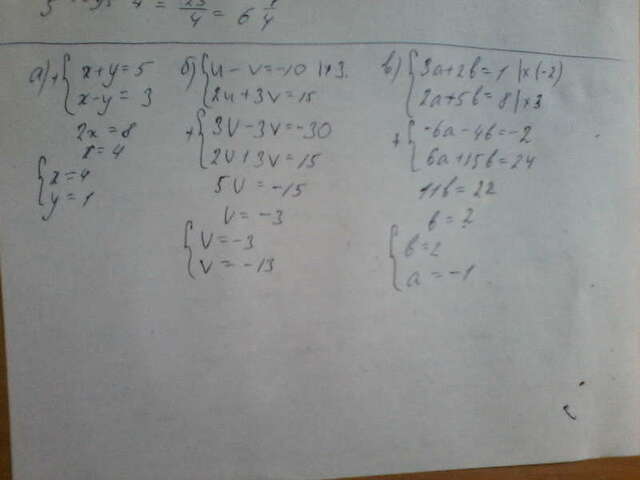 = 23/4 = 6 1/4
а) + { x + y = 5
x - y = 3
2x = 8
x = 4
{ x = 4
y = 1
б) { u - v = -10 | ×3
2u + 3v = 15
+ { 3v - 3v = -30
2v + 3v = 15
5v = -15
v = -3
{ v = -3
v = -13
в) { 3a + 2b = 1 | × (-2)
2a + 5b = 8 | × 3
+ { -6a - 4b = -2
6a + 15b = 24
11b = 22
b = 2
{ b = 2
a = -1